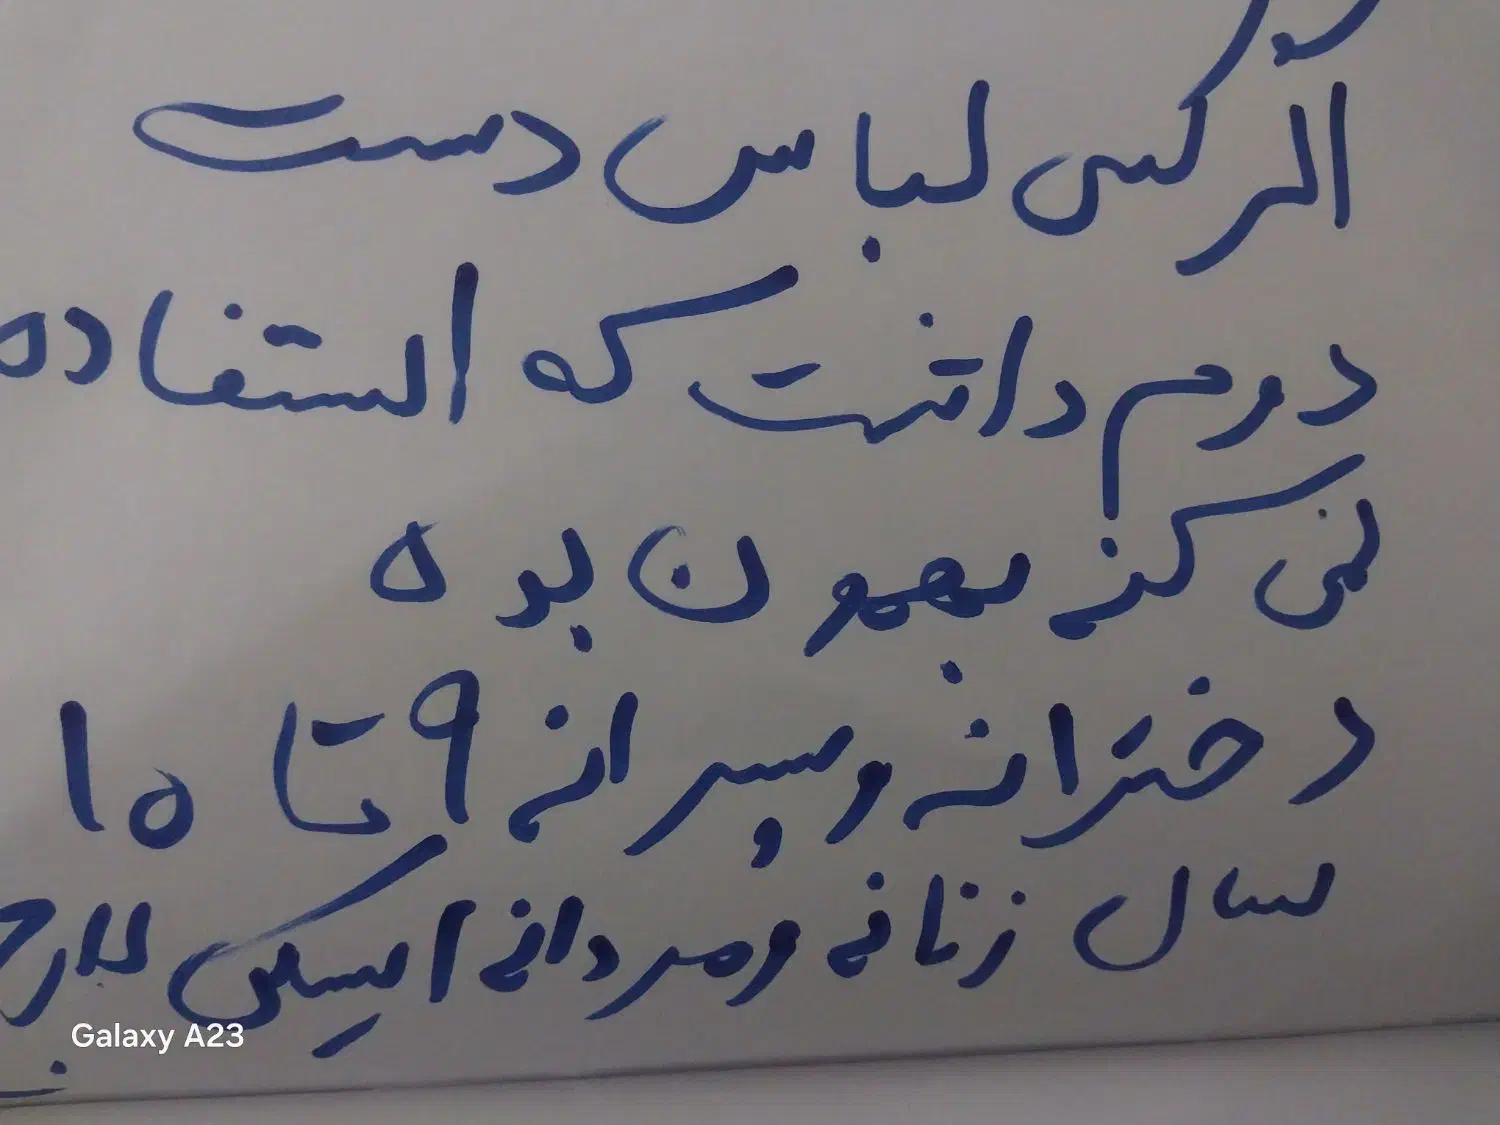 اگر کسی لباس دست
دوم داشت که استفاده
نمی کنه بهمون بده
دخترانه و پسرانه ۹ تا ۱۰
سال زنانه و مردانه ایسکی لارج
Galaxy A23